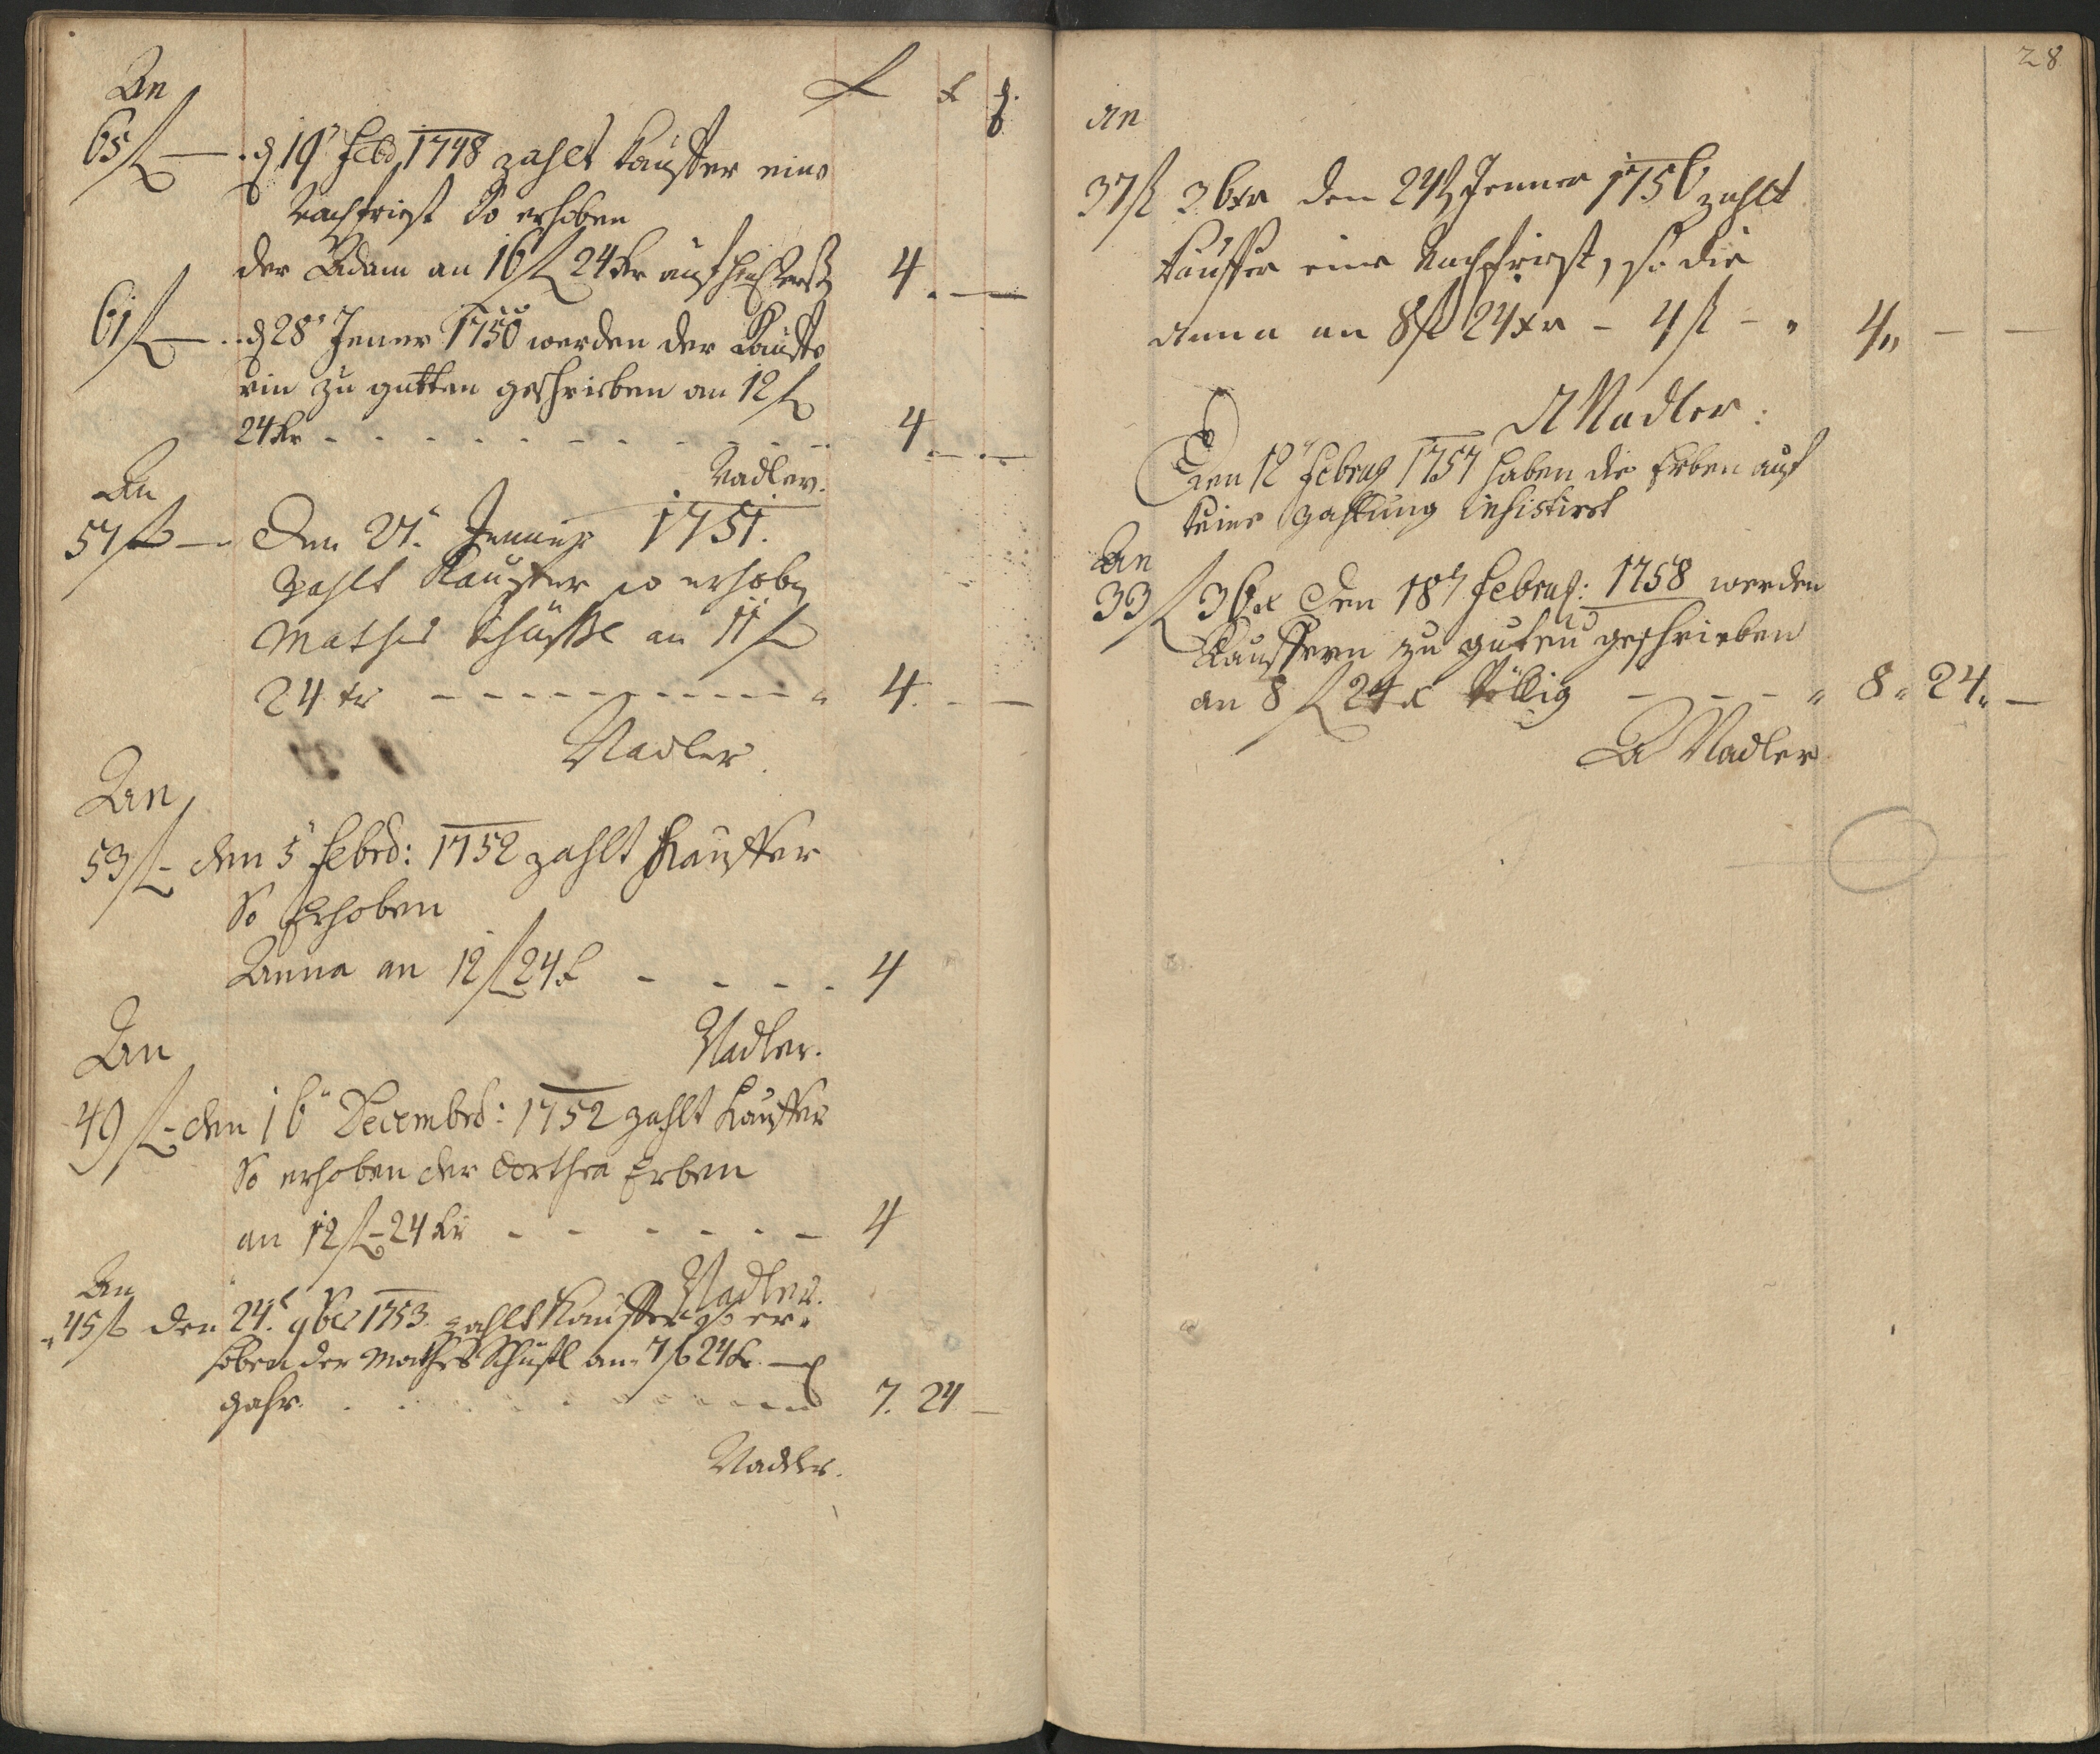 An fl x d.
65 fl — d 19 Febr 1748 zahlt Kauffer eine
Nachfrist So erhoben
der Adam an 16 fl 24 kr 4. —
61 fl — d 28 Jener 1750 werden der Kauffe
rin zu gutten geschrieben an 12 fl
24 kr - - - - - - - - - - 4. —
Nadler.
An
57 fl — Den 27. Jenner 1751.
zahlt Kauffer so erhobn
Mathes Schustl an 11 fl
24 kr - - - - - - - - - - 4. —
Nadler
An
53 fl - den 5 Febrd: 1752 zahlt Kauffer
So Erhoben
Anna an 12 fl 24 x - - - - 4
Nadler.
An
49 fl - den 16 Decembrd: 1752 zahlt Kauffer
So erhoben der Dorthea Erben
an 12 fl - 24 kr - - - - - - 4
Nadler.
An
45 fl den 24. 9ber 1753. zahlt Kauffer so er-
hoben der Mathes Schustl an 7 fl 24 kr. —
gahr. - - - - - - 7. 24 —
Nadler.
28
An
37 fl 36 xr den 24 Jenner 1756 zahlt
Kauffer eine Nachfrist, so die
Anna an 8 fl 24 xr - 4 fl - " 4 " — —
A Nadler:
Den 12 Febrag 1757 haben die Erben auf
keine Zahlung insistirt
An
33 fl 36 x Den 18 Febraj: 1758 werden
Kauffern zu guten geschrieben
an 8 fl 24 x völlig - - - " 8 " 24 " —
A Nadler